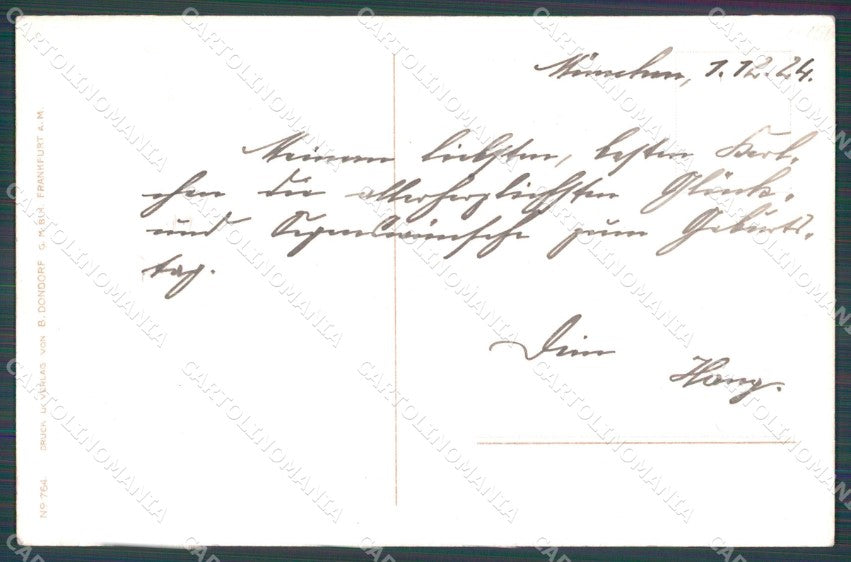 München, 1.12.24.
Meinem liebsten, besten Karl-
chen die allerherzlichsten Glück-
und Segenswünsche zum Geburts-
tag.
Dein
Hans.
Nº 764. DRUCK U. VERLAG VON B. DONDORF G. M. B. H. FRANKFURT A. M.
CARTOLINOMANIA